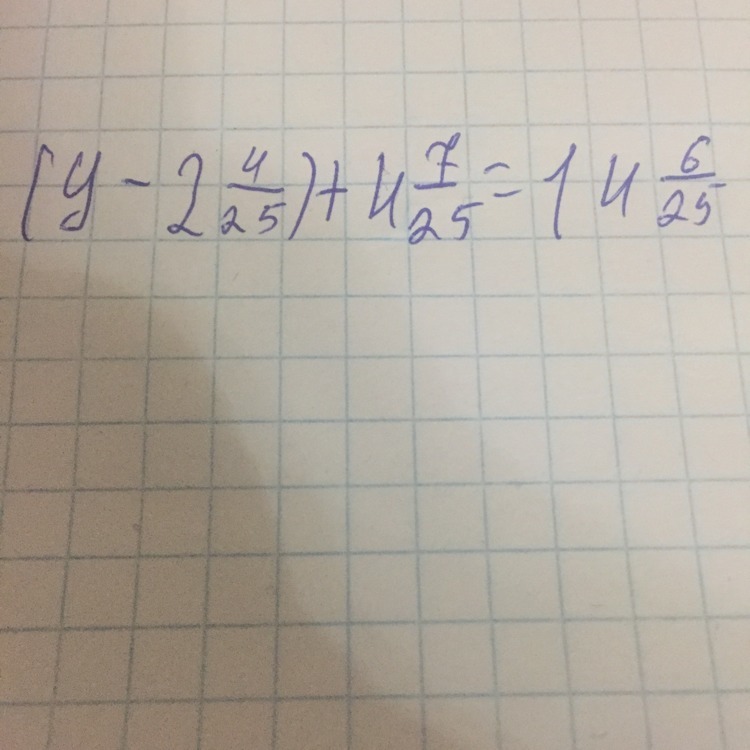 (y - 2 4/25) + 4 7/25 = 14 6/25